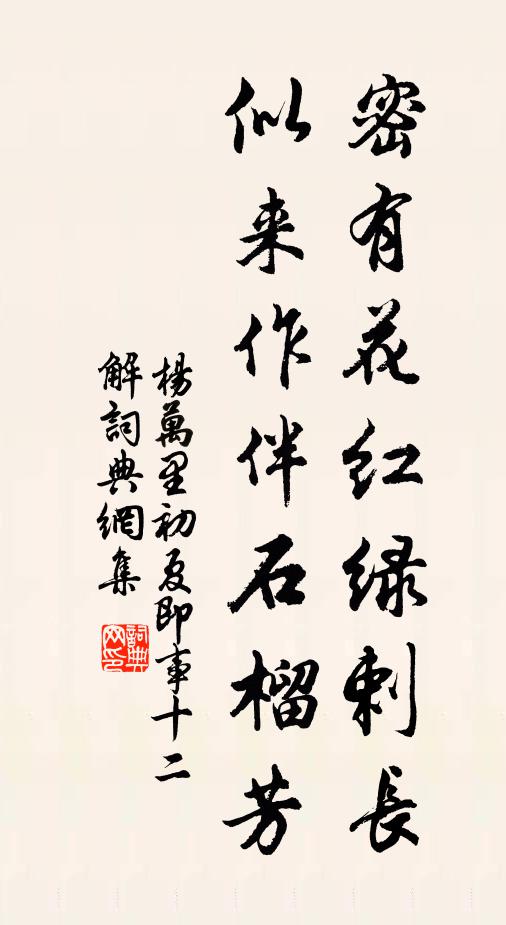 密有花红绿刺長
似来作伴石榴芳
楊萬里初夏即事十二
解詞典網集
詞典网印